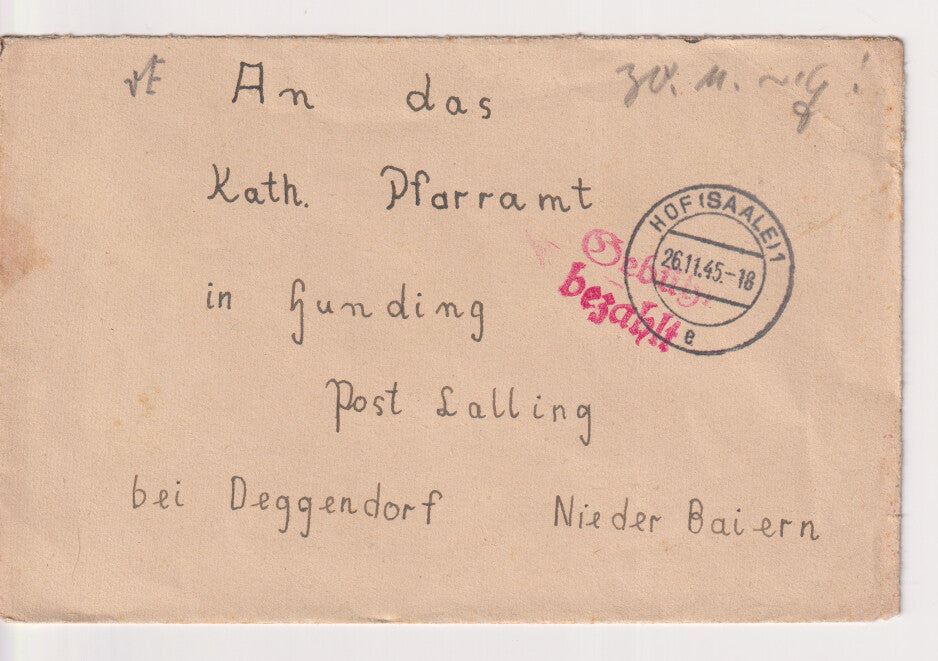 An das
30. 11.
Kath. Pfarramt
in Hunding
Post Lalling
bei Deggendorf Nieder Baiern
HOF (SAALE) 1
26.11.45.-18
e
Gebühr
bezahlt